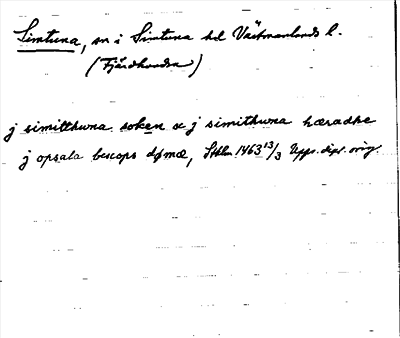 Simtuna, sn i Simtuna hd Västmanlands l.
(Fjärdhundra)
j simitthuna soken oc j simithuna hæradhe
j opsala bescops dømæ, Sthlm 1463 13/3 Upps. dipl. orig.